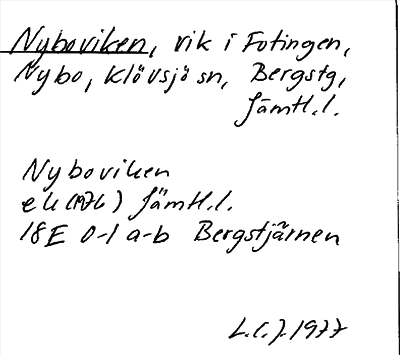 Nyboviken, vik i Fotingen,
Nybo, Klövsjö sn, Bergstg,
Jämtl.l.
Nyboviken
ek (1976) Jämtl.l.
18E 0-1 a-b Bergstjärnen
L.C.J. 1977